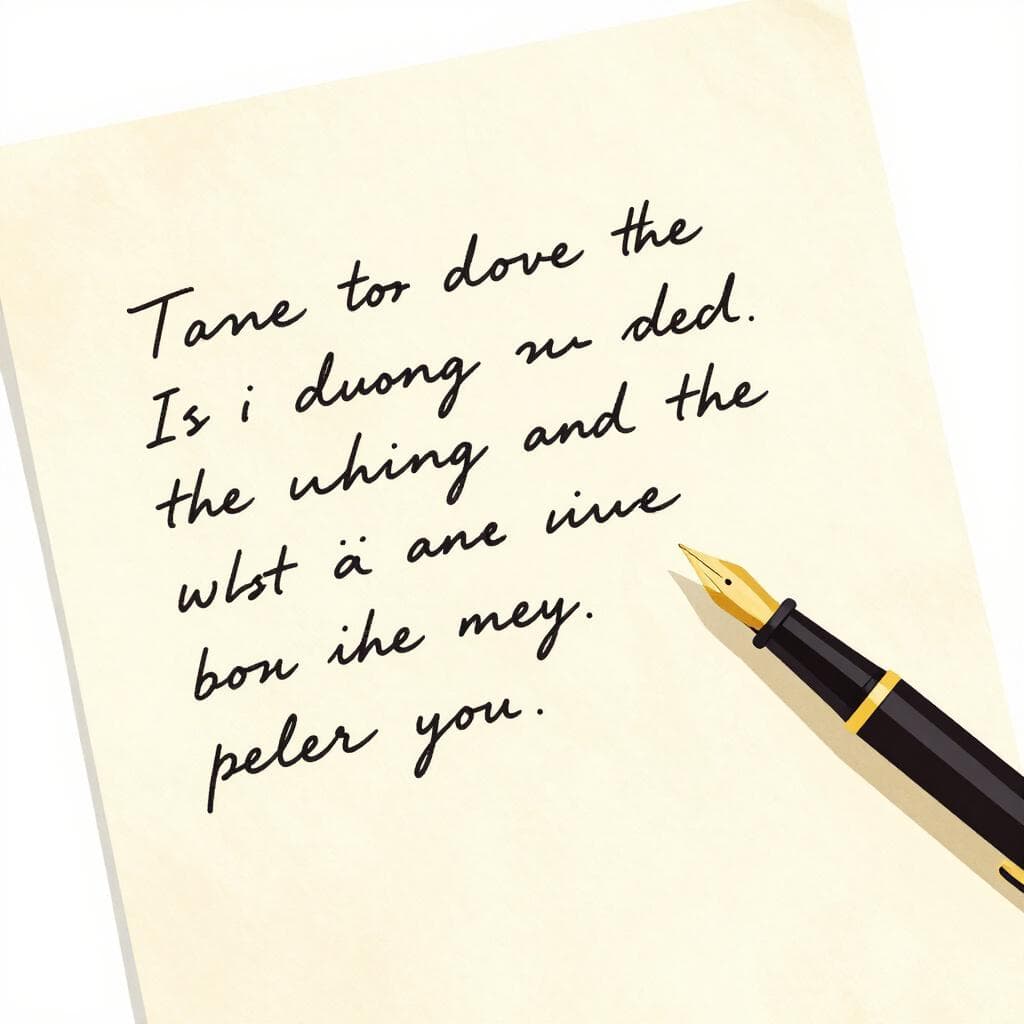 Tane tor dove the
Is i duong nu ded.
the uhing and the
wlst ä ane viue
bon ihe mey.
peler you.